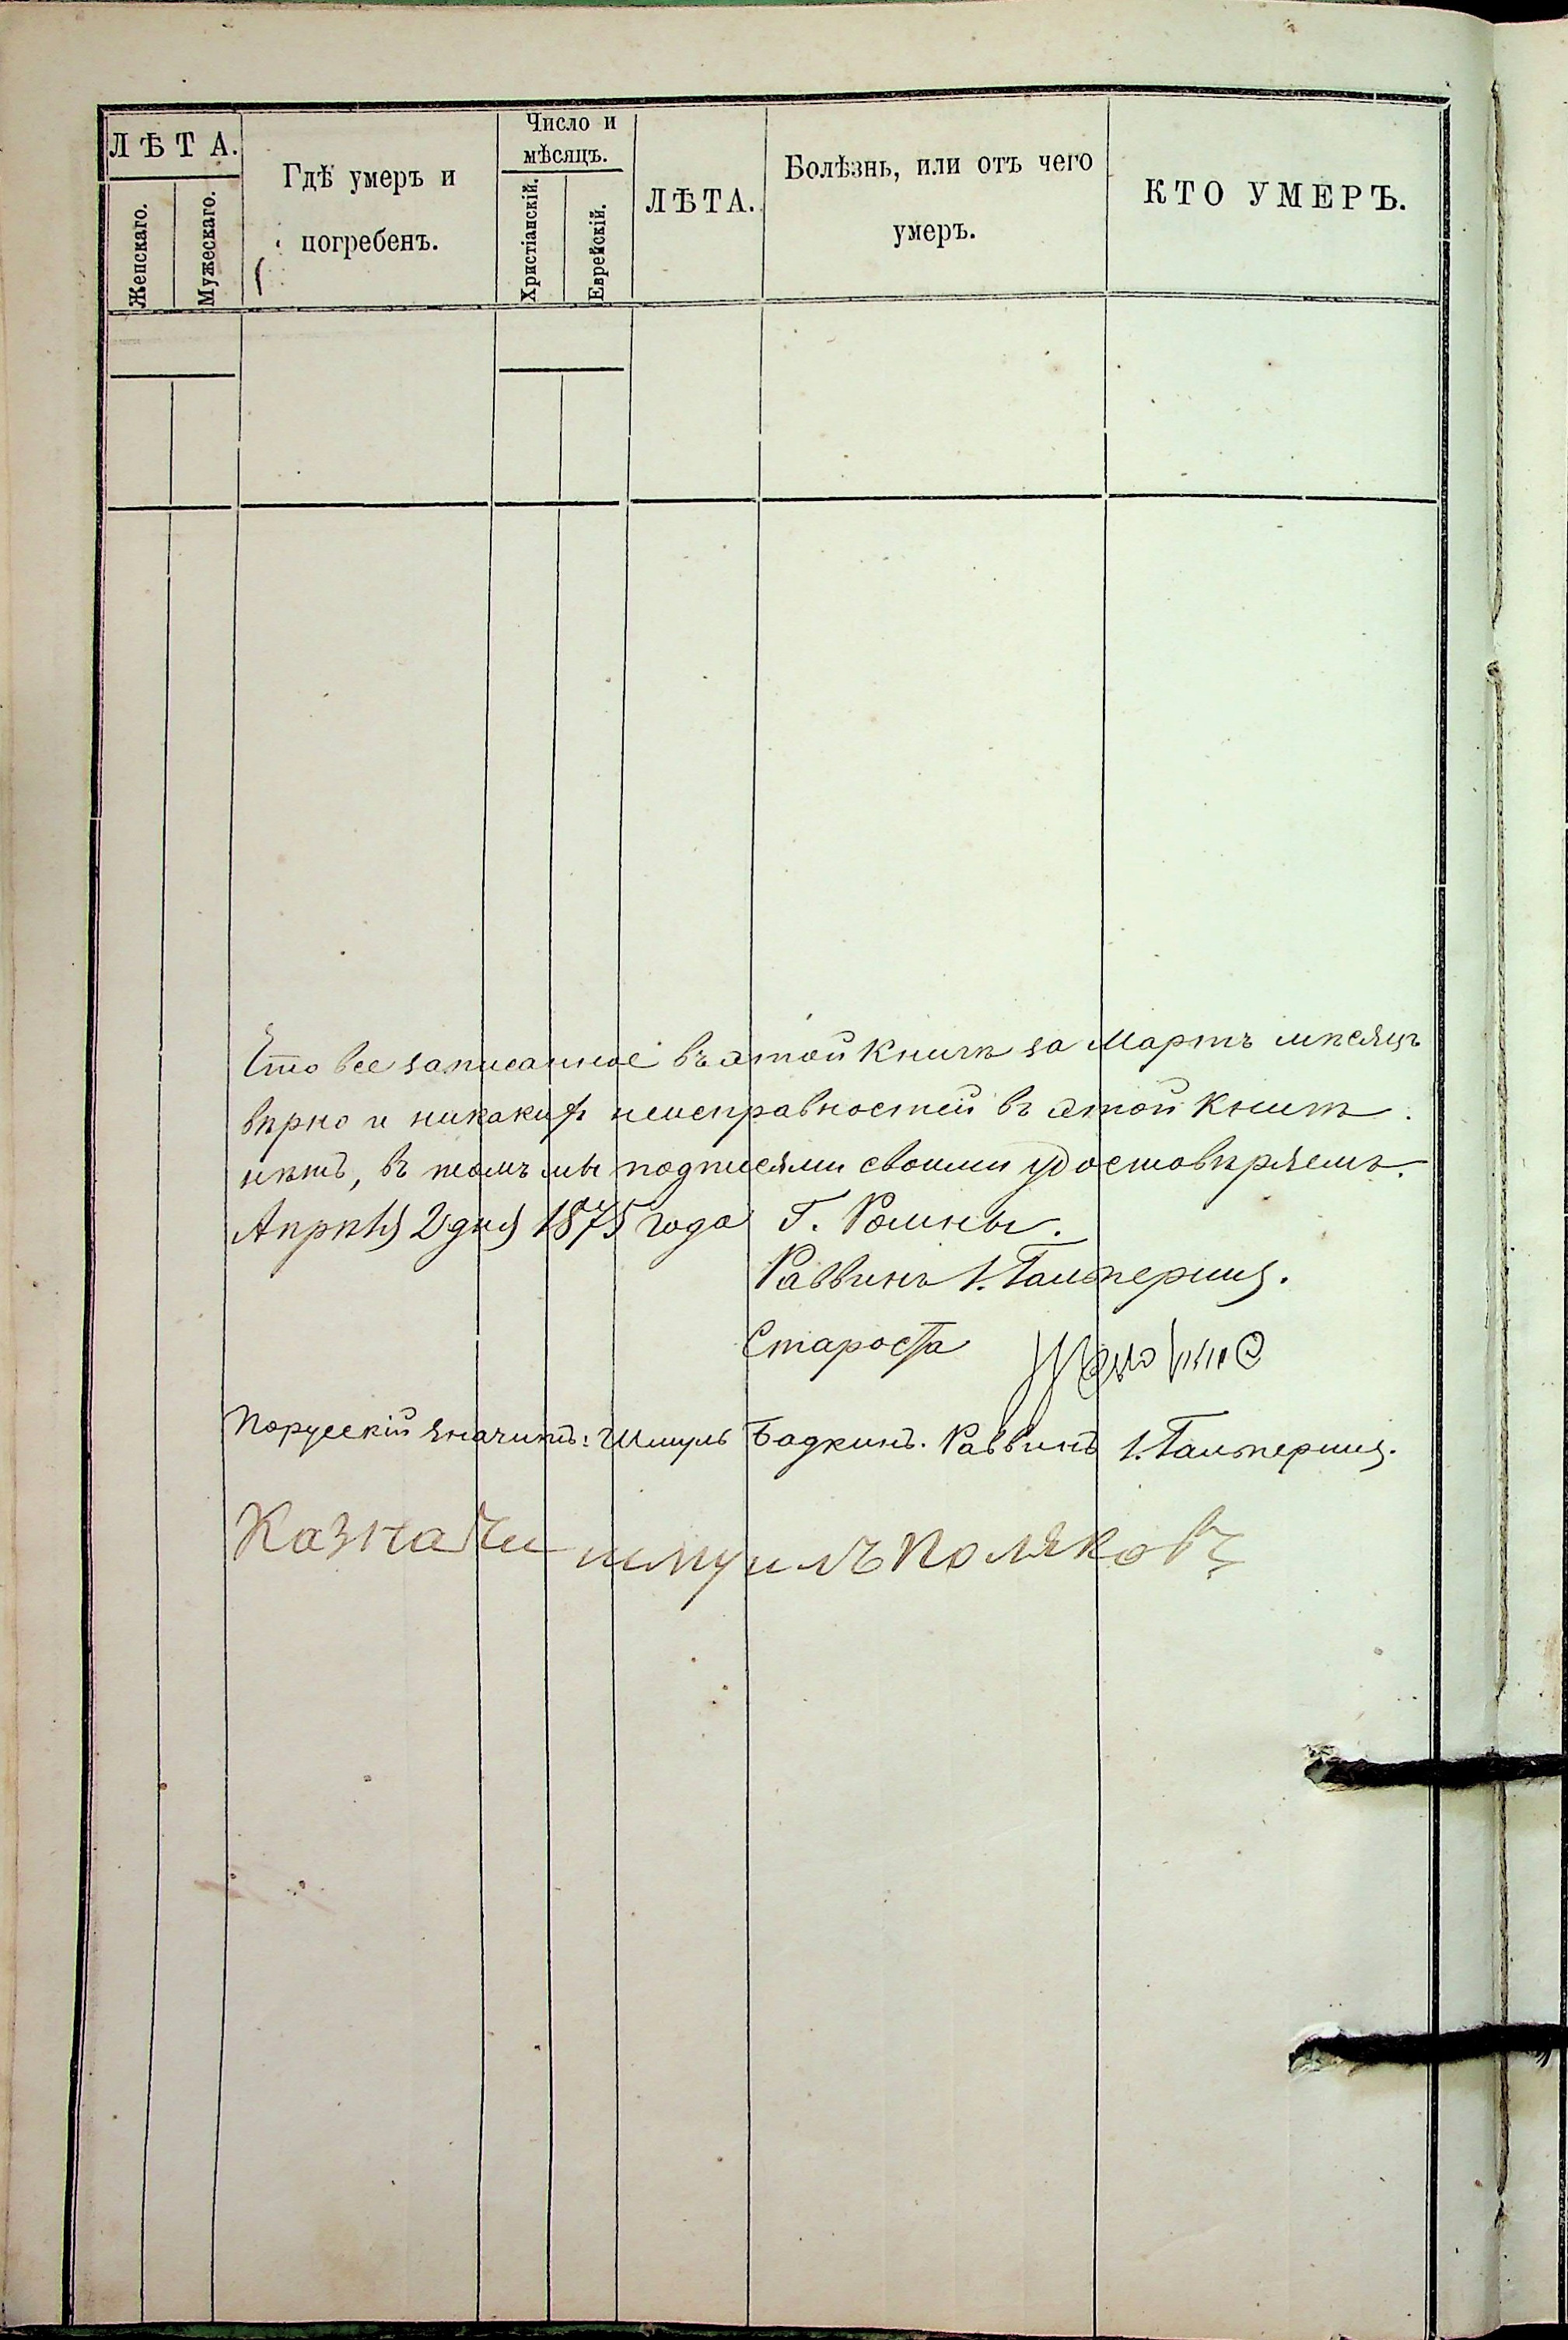 ЛѢТА.
Женскаго.
Мужескаго.
Гдѣ умеръ и
погребенъ.
Число и
мѣсяцъ.
Христіанскій.
Еврейскій.
ЛѢТА.
Болѣзнь, или отъ чего
умеръ.
КТО УМЕРЪ.
Что все записанное въ этой Книгѣ за Мартъ мѣсяцъ
вѣрно и никакихъ неисправностей въ этой Книгѣ
нѣтъ, въ томъ мы подписями своими удостовѣряемъ.
Апрѣля 2 дня 1875 года Г. Ромны.
Раввинъ І.
Староста
Порусскій значитъ: Шмуль Бадкинъ. Раввинъ І.
Казначи шмуилъ Поляковъ